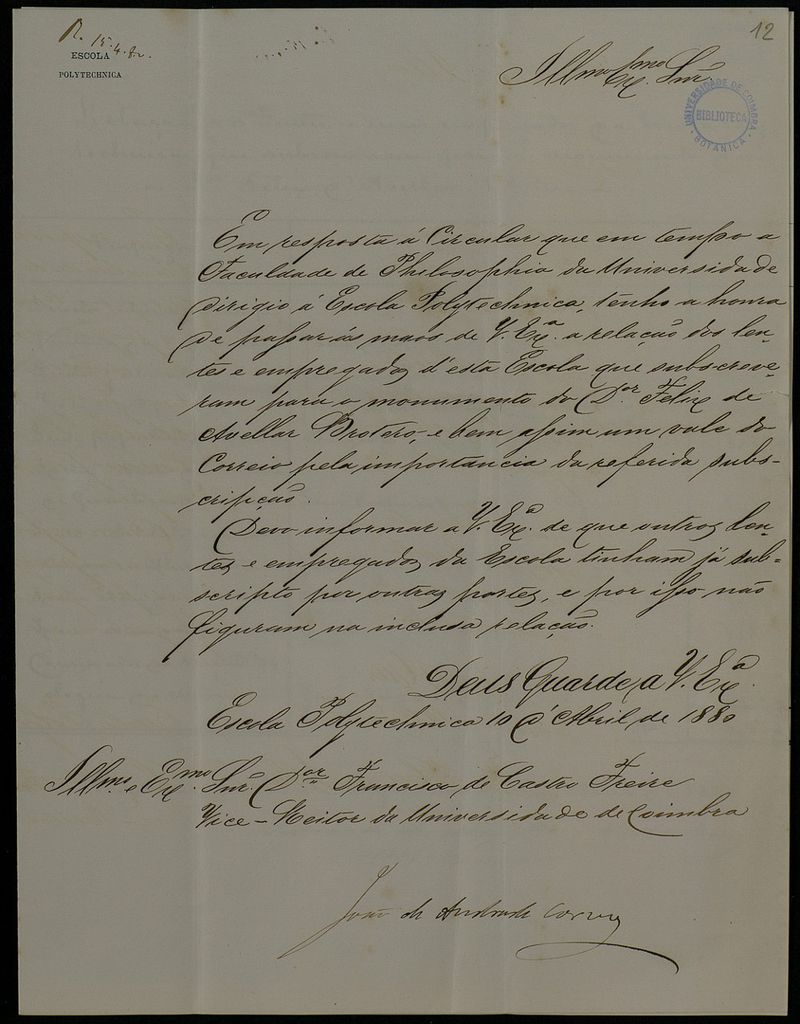 R. 15.4.82.
12
ESCOLA
POLYTECHNICA
Illmo Exmo Snr.
UNIVERSIDADE DE COIMBRA
BIBLIOTECA
BOTANICA
Em resposta á Circular que em tempo a
Faculdade de Philosophia da Universidade
dirigio á Escola Polytechnica, tenho a honra
de passar ás maos de V. Exª. a relação dos len-
tes e empregados d'esta Escola que subscreve-
ram para o monumento do Dor Felix de
Avellar Brotero, e bem assim um vale do
Correio pela importancia da referida subs-
cripção.
Devo informar a V. Exª. de que outros len-
tes e empregados da Escola tinham já sub-
scripto por outras partes, e por isso não
figuram na inclusa relação.
Deus Guarde a V. Exª
Escola Polytechnica 10 d'Abril de 1880
Illmo. e Exmo. Snr. Dor Francisco de Castro Freire
Vice-Reitor da Universidade de Coimbra
João de Andrade Corvo